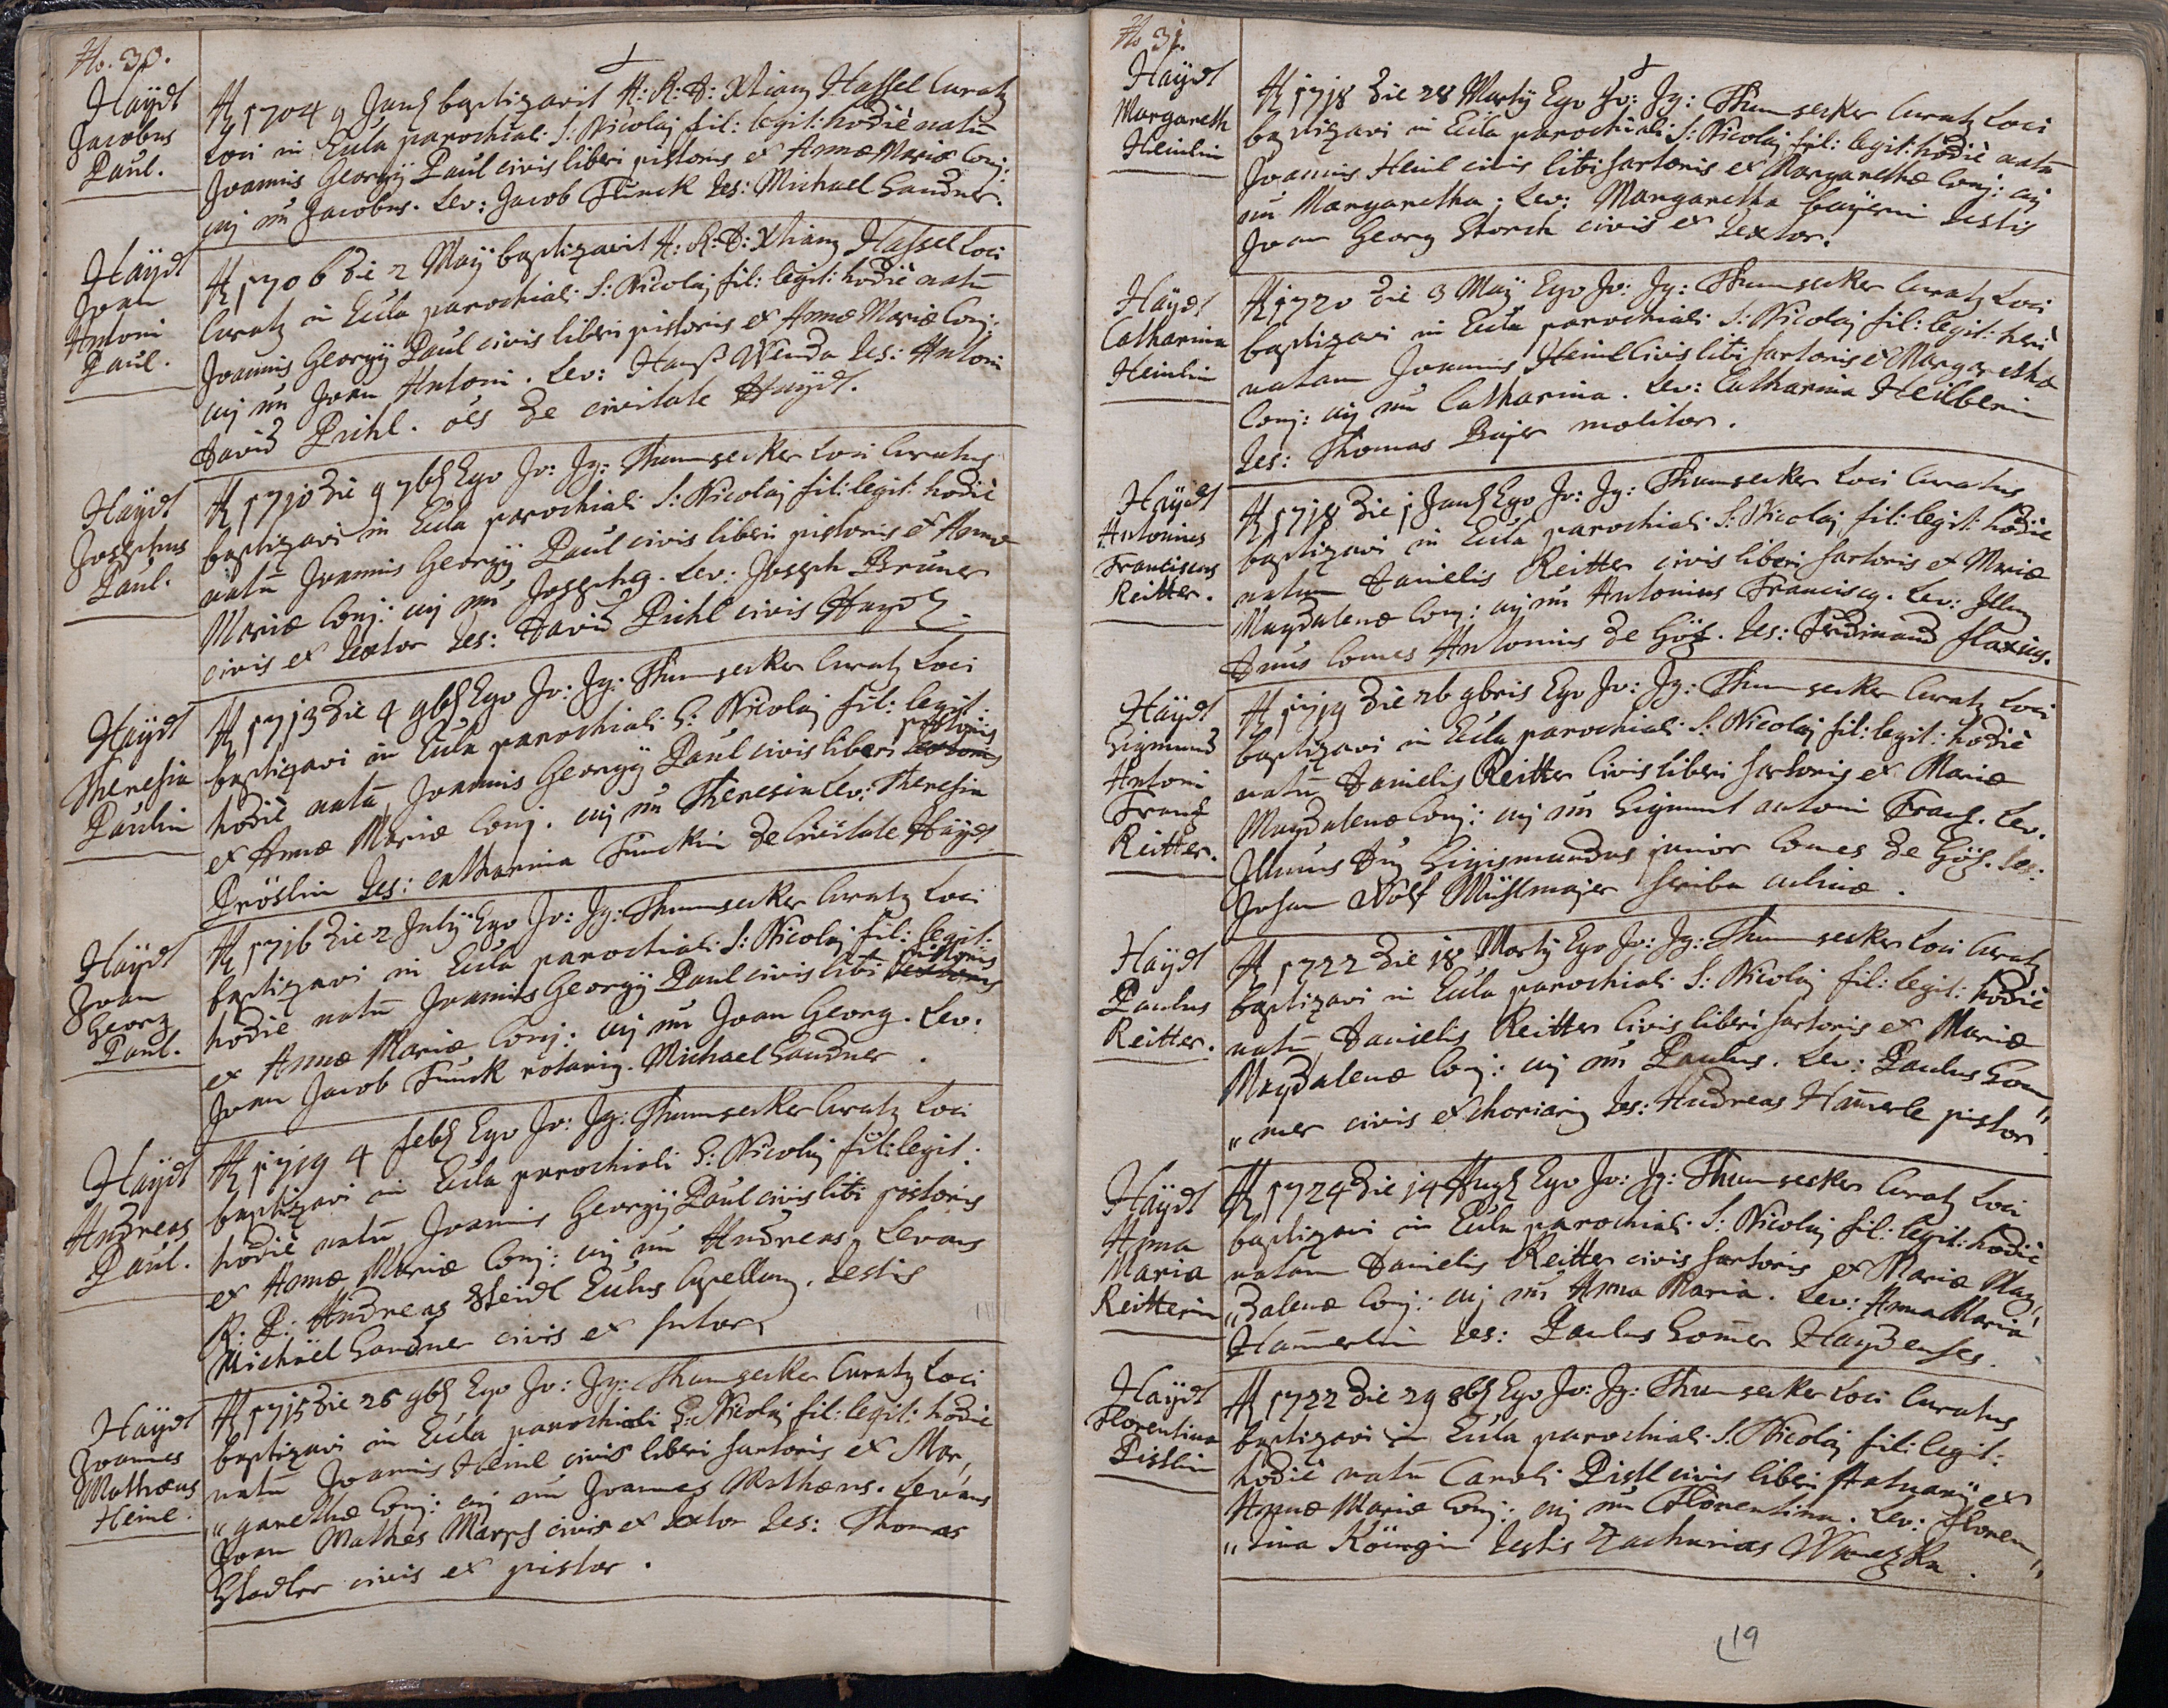 No. 30.
+
Haÿdt
Jacobus
Paul.
Aõ 1704 9 Janr̃ baptizavit A: R: D: Xtianq Hassel Curatq
Loci in Eccla parochiali S: Nicolaj fil: legit: hodiè natũ
Joannis Georgÿ Paul civis liberi pistoris et Annæ Mariæ Conj:
cuj nũ Jacobus. Lev: Jacob Funck Tes: Michael Sandner.
Haÿdt
Joan
Antoni
Paul.
Aõ 1706 die 2 Maÿ baptizavit A: R: D: Xtianq Hassel Loci
Curatq in Eccla parochiali S: Nicolaj fil: legit: hodiè natũ
Joannis Georgÿ Paul civis liberi pistoris et Annæ Mariæ Conj:
cuj nũ Joan Antoni. Lev: Hanß Wenda Tes: Antoni
David Pichl. oẽs de civitate Haÿdt.
Haÿdt
Josephus
Paul.
Aõ 1710 die 9 7br̃ Ego Jo: Jg: Thumsecker Loci Curatus
baptizavi in Eccla parochiali S: Nicolaj fil: legit: hodiè
natũ Joannis Georgÿ Paul civis liberi pistoris et Annæ
Mariæ Conj: cuj nũ Josephq. Lev: Joseph Bruner
civis et textor Tes: David Pichl civis Hayd:
Haÿdt
Theresia
Paulin
Aõ 1713 die 4 9br̃ Ego Jo: Jg: Thumsecker Curatq Loci
baptizavi in Eccla parochiali S: Nicolaj fil: legit:
pistoris
hodiè natã Joannis Georgÿ Paul civis liberi textoris
et Annæ Mariæ Conj. cuj nũ Theresia Lev: Theresia
Pröslin Tes: catharina Funckin de Civitate Haÿdt
Haÿdt
Joan
Georg
Paul.
Aõ 1716 die 2 Julÿ Ego Jo: Jg: Thumsecker Curatq Loci
baptizavi in Eccla parochiali S: Nicolaj fil: legit:
pistoris
hodiè natũ Joannis Georgÿ Paul civis libi textoris
et Annæ Mariæ Conj: cuj nũ Joan Georg. Lev:
Joan Jacob Funck rotariq. Michael Sandner.
Haÿdt
Andreas
Paul.
Aõ 1719 4 febr̃ Ego Jo: Jg: Thumsecker Curatq Loci
baptizavi in Eccla parochiali S: Nicolaj fil: legit:
hodiè natũ Joannis Georgÿ Paul civis libi pistoris
et Annæ Mariæ Conj: cuj nũ Andreas. Levans
R: P: Andreas Steidl Capellanq. Testis
Michäel Sandner civis et sutor.
Haÿdt
Joannes
Mathæus
Heinl.
Aõ 1715 die 25 9br̃ Ego Jo: Jg: Thumsecker Curatq Loci
baptizavi in Eccla parochiali S: Nicolaj fil: legit: hodiè
natũ Joannis Heinl civis liberi sartoris et Mar,
„garethæ Conj: cuj nũ Joannes Mathæus. Levans
Joan Mathes civis et textor Tes: Thomas
Stadler civis et pistor.
No. 31.
+
Haÿdt
Margareth
Heinlin
Aõ 1718 die 28 Martÿ Ego Jo: Jg: Thumsecker Curatq Loci
baptizavi in Eccla parochiali S: Nicolaj fil: legit: hodiè natã
Joannis Heinl civis libi sartoris et Margarethæ Conj: cuj
nũ Margaretha. Lev: Margaretha Testis
Joan Georg Storch civis et textor.
Haÿdt
Catharina
Heinlin
Aõ 1720 die 3 Maÿ Ego Jo: Jg: Thumsecker Curatq Loci
baptizavi in Eccla parochiali S: Nicolaj fil: legit: heri
natam Joannis Heinl Civis libi sartoris et Margarethæ
Conj: cuj nũ Catharina. Lev: Catharina Heilberin
Tes: Thomas Bajer molitor.
Haÿdt
Antonius
Franciscus
Reitter.
Aõ 1718 die 1 Janr̃ Ego Jo: Jg: Thumsecker Loci Curatus
baptizavi in Eccla parochiali S: Nicolaj fil: legit: hodiè
natum Danielis Reitter civis liberi sartoris et Mariæ
Magdalenæ Conj: cuj nũ Antonius Franciscq. Lev: Illmq
Dnus Comes Antonius de Göz. Tes: Ferdinand flaxius.
Haÿdt
Sigmund
Antoni
Franz
Reitter.
Aõ 1719 die 26 9bris Ego Jo: Jg: Thumsecker Curatq Loci
baptizavi in Eccla parochiali S: Nicolaj fil: legit: hodiè
natũ Danielis Reitter Civis liberi sartoris et Mariæ
Magdalenæ Conj: cuj nũ Sigmunt antoni Franz. Lev.
Illmus Dnq Sigismundus junior Comes de Göz. Tes:
Johan Wolf Mühlmajer scriba culinæ.
Haÿdt
Paulus
Reitter.
Aõ 1722 die 18 Martÿ Ego Jo: Jg: Thumsecker Loci Curatq
baptizavi in Eccla parochiali S: Nicolaj fil: legit: hodiè
natũ Danielis Reitter Civis liberi sartoris et Mariæ
Magdalenæ Conj: cuj nũ Paulus. Lev: Paulus Som„
„mer civis et choriariq Tes: Andreas Ham̃erle pistor.
Haÿdt
Anna
Maria
Reitterin
Aõ 1724 die 14 Augr̃ Ego Jo: Jg: Thumsecker Curatq Loci
baptizavi in Eccla parochiali S: Nicolaj fil: legit: hodiè
natam Danielis Reitter civis sartoris et Mariæ Mag„
„dalenæ Conj: cuj nũ Anna Maria. Lev: Anna Maria
Ham̃erlin Tes: Paulus Som̃er Haydenses.
Haÿdt
Florentina
Pistlin
Aõ 1722 die 29 8br̃ Ego Jo: Jg: Thumsecker Loci Curatus
baptizavi in Eccla parochiali S: Nicolaj fil: legit:
hodiè natã Caroli Pistl civis liberi Statuarÿ et
Annæ Mariæ Conj: cuj nũ Florentina. Lev: Floren„
„tina Königin Testis Zacharias
19